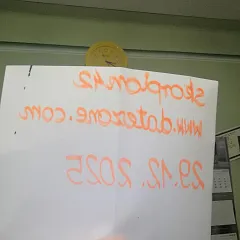 skorpion42
www.datezone.com
29.12.2025